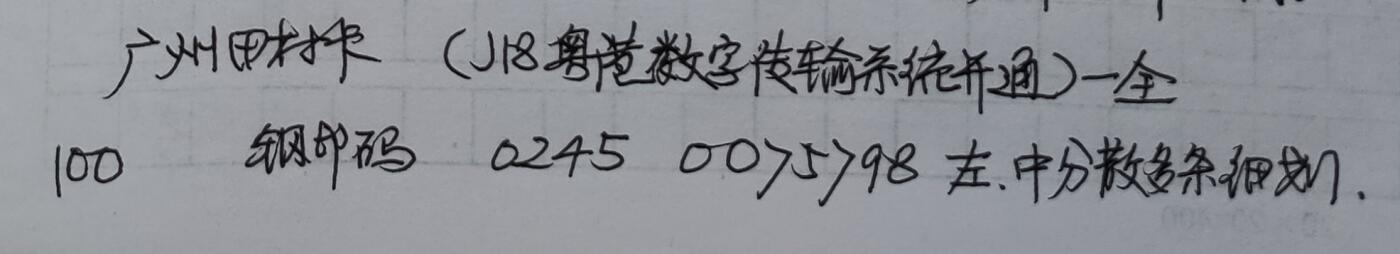 广州田村卡 (J18粤港数字传输系统开通)一全
100 钢印码 0245 0075798 左.中分散多条细划.